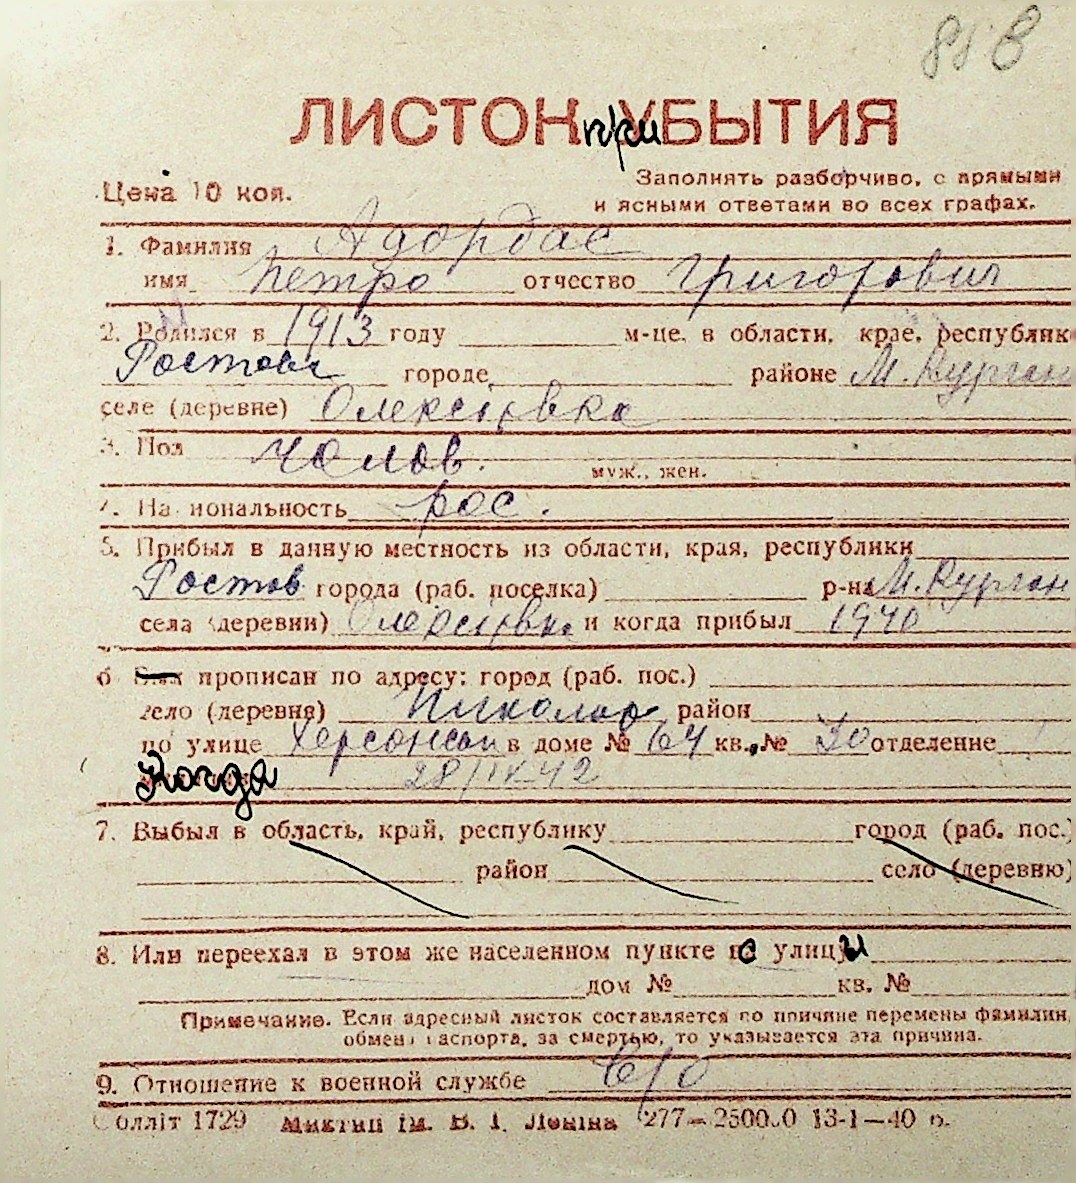 ЛИСТОК при УБЫТИЯ
Цена 10 коп.
Заполнять разборчиво, с прямыми
и ясными ответами во всех графах.
1. Фамилия
имя Петро отчество Григорович
2. Родился в 1913 году м-це, в области, крае, республик
Ростовс городе районе М. Курган
селе (деревне) Олексіївка
3. Пол чолов.
муж., жен.
4. Национальность рос.
5. Прибыл в данную местность из области, края, республики
Ростов города (раб. поселка) р-на М. Курган
села (деревни) Олексіївка и когда прибыл 1940
6 прописан по адресу: город (раб. пос.)
село (деревня) Николаев район
по улице Херсонськ в доме № 64 кв. № 30 отделение
Когда 28/IX 42
7. Выбыл в область, край, республику город (раб. пос.)
район село (деревню)
8. Или переехал в этом же населенном пункте с улицы
дом № кв. №
Примечание. Если адресный листок составляется по причине перемены фамилии,
обмена паспорта, за смертью, то указывается эта причина.
9. Отношение к военной службе в/о
Соллiт 1729 Миктип iм. В. I. Ленiна 277—25000.0 13-1—40 р.